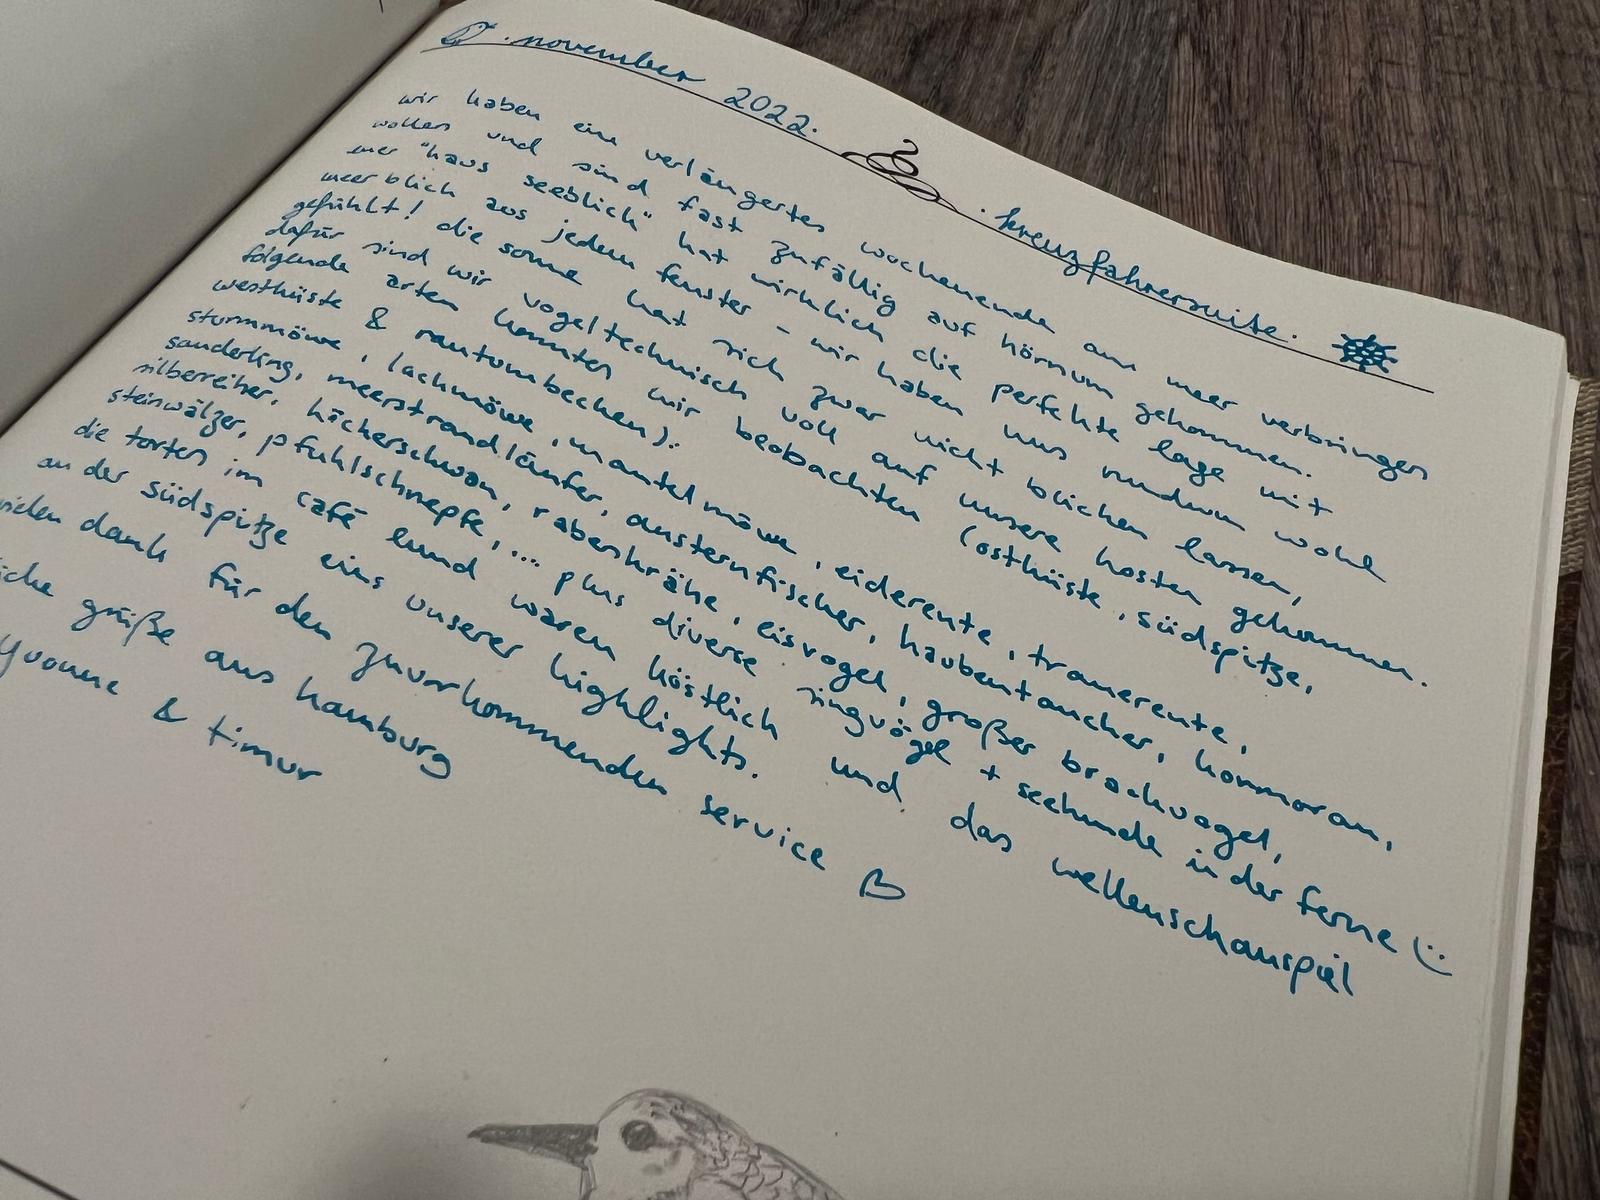 . november 2022.
. kreuzfahrersuite.
wir haben ein verlängertes wochenende am meer verbringen
wollen und sind fast zufällig auf hörnum gekommen.
"haus seeblick" hat wirklich die perfekte lage mit
meerblick aus jedem fenster - wir haben uns rundum wohl
gefühlt! die sonne hat sich zwar nicht blicken lassen,
dafür sind wir vogeltechnisch voll auf unsere kosten gekommen.
folgende arten konnten wir beobachten (ostküste, südspitze,
westküste & rantumbecken):
sturmmöwe, lachmöwe, mantelmöwe, eiderente, trauerente,
sanderling, meerstrandläufer, austernfischer, haubentaucher, kormoran,
silberreiher, höckerschwan, rabenkrähe, eisvogel, großer brachvogel,
steinwälzer, pfuhlschnepfe, ... plus diverse singvögel + seehunde in der ferne (:
die torten im café lund waren köstlich und das wellenschauspiel
an der südspitze eins unserer highlights.
vielen dank für den zuvorkommenden service ♡
grüße aus hamburg
yvonne & timur